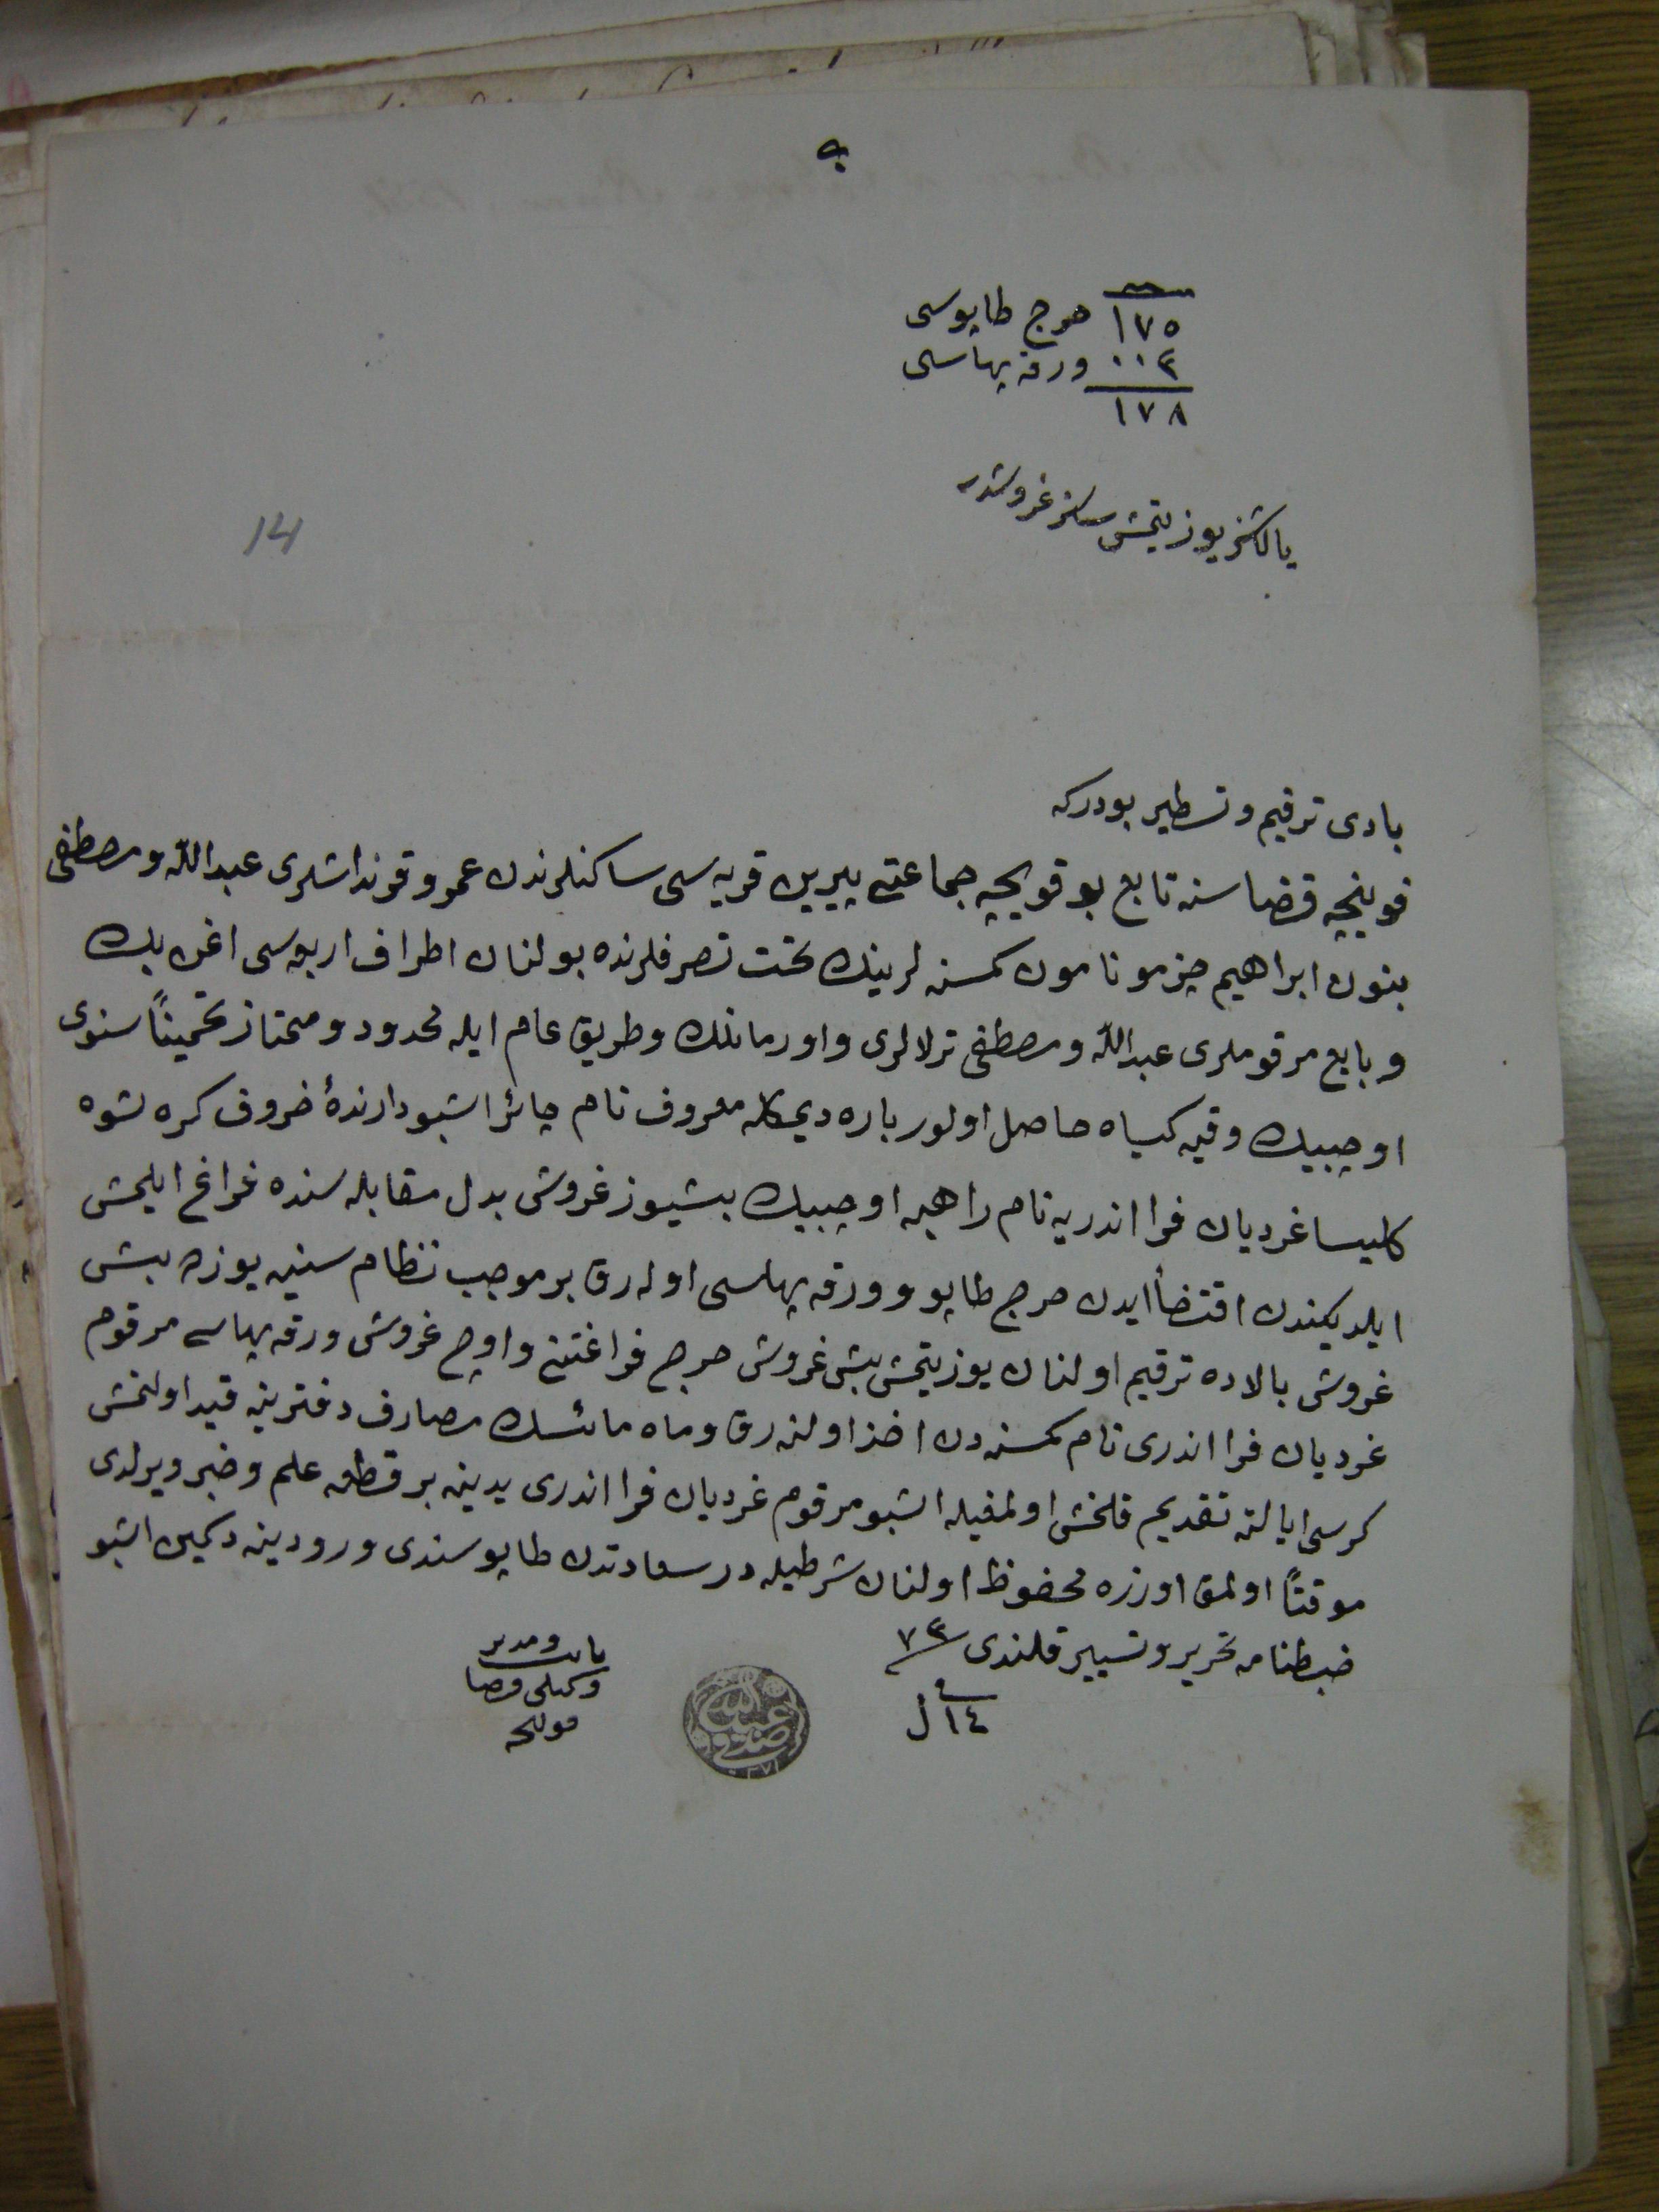 ١٧٥ خرج طاپوسی
٠٠٣ ورقه بهاسی
١٧٨
یالکز یوز یتمش سکز غروشدر
14
بادی ترقیم و تسطیر بودرکه
فوینیچه قضاسنه تابع جماعتی قریه سی ساکنلرندن عمر و قرنداشلری عبدالله و مصطفی
بنون ابراهیم نامون کمسنه لرینك تحت تصرفلرنده بولنان اطراف اربعه سی اغن بك
و بایع مرقوملری عبدالله و مصطفی ترلالری و اورمانلك و طریق عام ایله محدود و ممتاز تخمیناً سنوی
اوچبیك وقیه کیاه حاصل اولور باره دیمکله معروف نام چائرا اشبو دارندهٔ
کلیسا غردیان فرا اندریه نام راهبه اوچبیك بشیوز غروش بدل مقابله سنده فراغ ایلمش
ایلدیکندن اقتضأ ایدن خرج طاپو و ورقه بهاسی اوله رق بر موجب نظام سنیه یوزه بش
غروش بالاده ترقیم اولنان یوز یتمش بش غروش خرج فراغتی و اوچ غروش ورقه بهاسی مرقوم
غردیان فرا اندری نام کمسنه دن اخذ اولنه رق و ماه مصارف دفترینه قید اولنمش
کرسی ایالته تقدیم قلنمش اولمغیله اشبو مرقوم غردیان فرا اندری یدینه بر قطعه علم و خبر ویرلدی
موقتاً اولمق اوزره محفوظ اولنان شرطیله در سعادتدن طاپو سندی ورودینه دکین اشبو
ضبطنامه تحریر و تسییر قلندی ٧٣
فی ١٤ ل
و مدیر
وکیلی قضا
فوینیچه